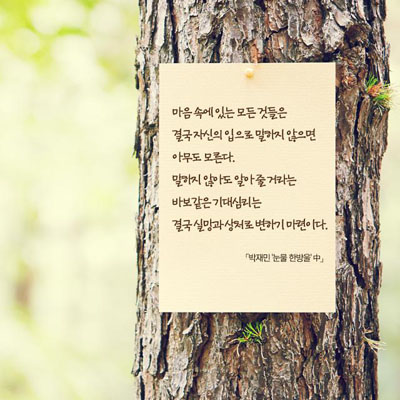 마음 속에 있는 모든 것들은
결국 자신의 입으로 말하지 않으면
아무도 모른다.
말하지 않아도 알아 줄 거라는
바보같은 기대심리는
결국 실망과 상처로 변하기 마련이다.
「박재민 '눈물 한방울' 中」